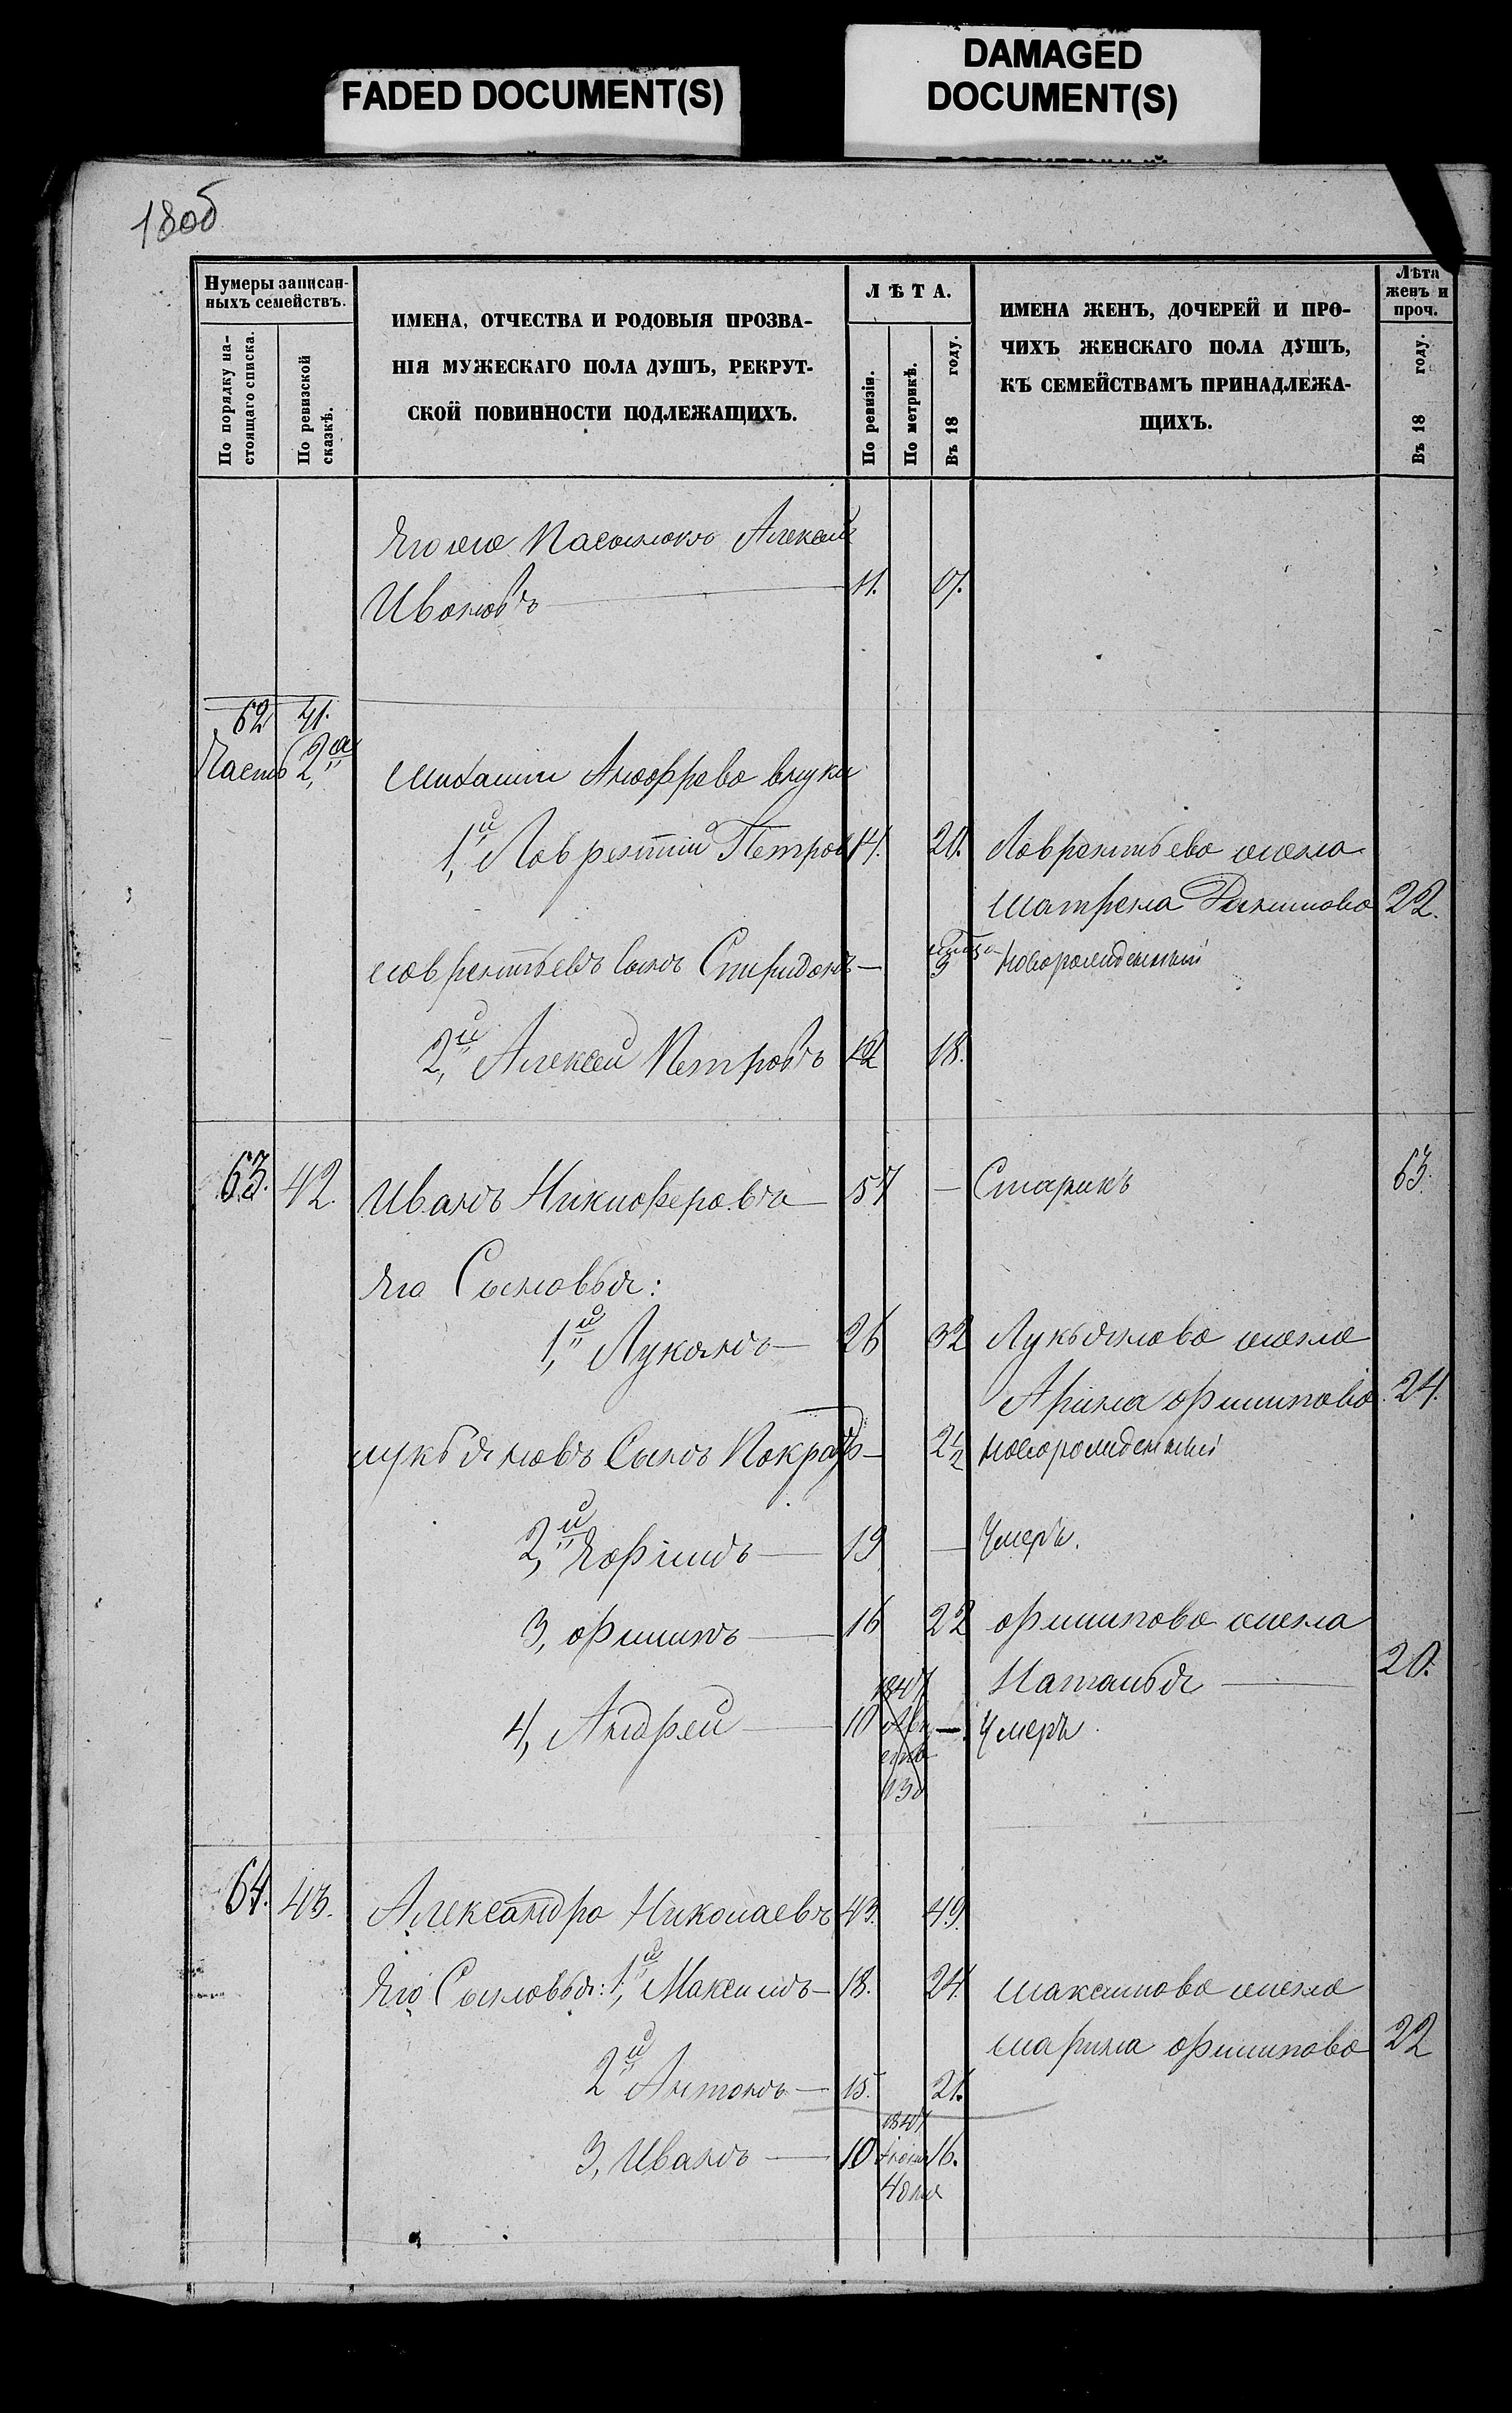 FADED DOCUMENT(S)
DAMAGED
DOCUMENT(S)
180об
Нумеры записан-
ныхъ семействъ.
По порядку на-
стоящаго списка.
По ревизской
сказкѣ.
ИМЕНА, ОТЧЕСТВА И РОДОВЫЯ ПРОЗВА-
НІЯ МУЖЕСКАГО ПОЛА ДУШЪ, РЕКРУТ-
СКОЙ ПОВИННОСТИ ПОДЛЕЖАЩИХЪ.
ЛѢТА.
По ревизіи.
По метрикѣ.
Въ 18 году.
ИМЕНА ЖЕНЪ, ДОЧЕРЕЙ И ПРО-
ЧИХЪ ЖЕНСКАГО ПОЛА ДУШЪ,
КЪ СЕМЕЙСТВАМЪ ПРИНАДЛЕЖА-
ЩИХЪ.
Лѣта
женъ и
проч.
Въ 18 году.
Алексей
Ивановъ 11. 17.
62 41.
Часть 2,я Михайлы внуки
1,й Лаврентий Петров 14. 20. Лаврентьева жена
Матрена 22.
Лаврентьевъ Сынъ Спиридонъ — 9 новорожденный
2,й Алексей Петровъ 12 18.
63. 42. Иванъ Никифоровъ — 57 — Старикъ 63.
Его Сыновья:
1,й Лукьянъ — 26 32 Лукьянова жена
Арина Филипова 24.
Лукьяновъ Сынъ — 2½ новорожденный
2,й Ефимъ — 19 — Умеръ.
3, Филипъ — 16 22 Филипова жена
Наталья — 20.
4, Андрей — 10 1847 — Умеръ.
64. 43. Александръ Николаевъ 43. 49.
Его Сыновья: 1,й Максимъ — 18. 24. Максимова жена
Марина Филипова 22
2й Антонъ — 15. 21.
3, Иванъ — 10 1847 16.
4 дня